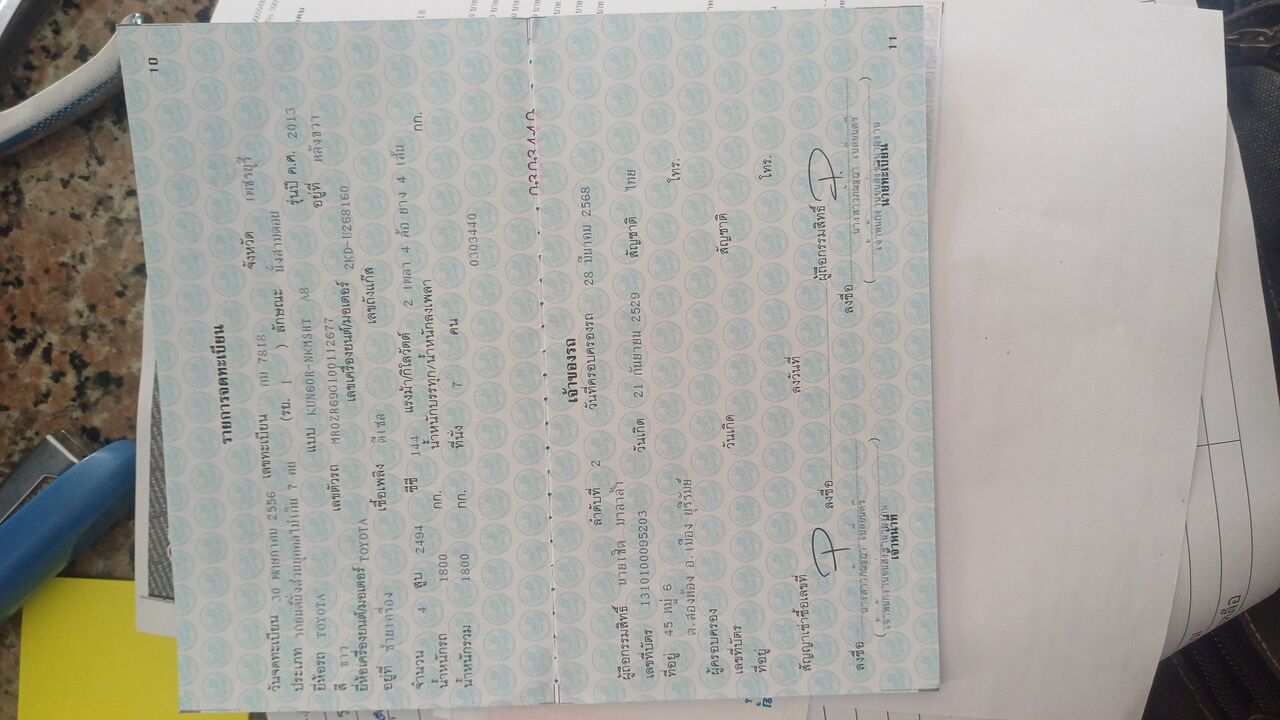 10
รายการจดทะเบียน
วันจดทะเบียน 30 พฤษภาคม 2556 เลขทะเบียน กม 7818 จังหวัด เพชรบุรี
ประเภท รถยนต์นั่งส่วนบุคคลไม่เกิน 7 คน (รย. 1 ) ลักษณะ นั่งสามตอน
ยี่ห้อรถ TOYOTA แบบ KUN60R-NKMSHT A8 รุ่นปี ค.ศ. 2013
สี ขาว เลขตัวรถ MR0ZR69G100112677 อยู่ที่ หลังขวา
ยี่ห้อเครื่องยนต์/มอเตอร์ TOYOTA เลขเครื่องยนต์/มอเตอร์ 2KD-U268160
อยู่ที่ ซ้ายเครื่อง เชื้อเพลิง ดีเซล เลขถังแก๊ส
จำนวน 4 สูบ 2494 ซีซี 144 แรงม้า/กิโลวัตต์ 2 เพลา 4 ล้อ ยาง 4 เส้น
น้ำหนักรถ 1800 กก. น้ำหนักบรรทุก/น้ำหนักลงเพลา กก.
น้ำหนักรวม 1800 กก. ที่นั่ง 7 คน 0303440
0303440
เจ้าของรถ
ลำดับที่ 2 วันที่ครอบครองรถ 28 มีนาคม 2568
ผู้ถือกรรมสิทธิ์ นายเชิด มาลาล้ำ
เลขที่บัตร 1310100095203 วันเกิด 21 กันยายน 2529 สัญชาติ ไทย
ที่อยู่ 45 หมู่ 6 โทร.
ต.สองห้อง อ.เมือง บุรีรัมย์
ผู้ครอบครอง
เลขที่บัตร วันเกิด สัญชาติ
ที่อยู่ โทร.
สัญญาเช่าซื้อเลขที่ ลงวันที่
ลงชื่อ ผู้ถือกรรมสิทธิ์
ลงชื่อ ลงชื่อ
เจ้าหน้าที่ นายทะเบียน
11